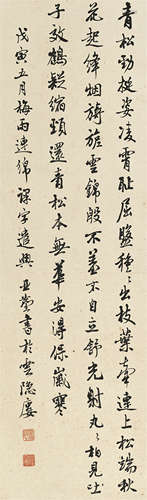 青松勁挺姿凌霄耻屈盤種種出枝葉牽連上松端秋
花起絳烟旖旎雲錦殷不羞不自立舒光射丸丸柏見吐
子效鶴疑縮頸還青松本無華安得保歲寒
戊寅五月梅雨連綿課字遣興 亞蘧書於雲隱廔